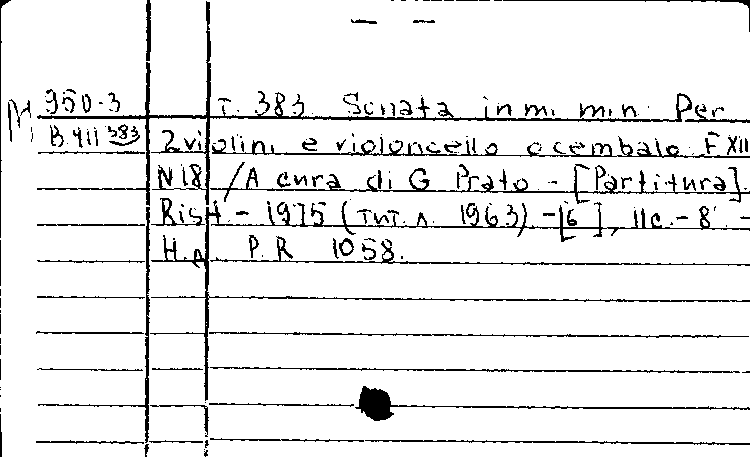 M 950-3 T. 383. Sonata in mi min. Per
B 411 383 2 violini e violoncello o cembalo F XIII
N 18 / A cura di G Prato - [Partitura]
Rist - 1975 (1963) - [6], 11 c. - 8° -
H.a. P.R 1058.